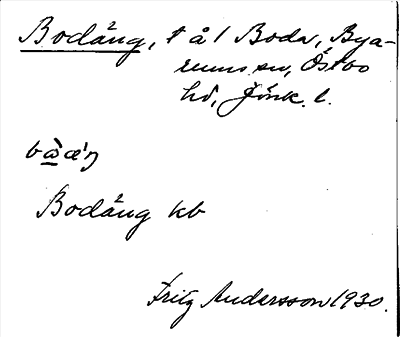 Bodäng, t å 1 Boda, Bya-
rums sn, Östbo
hd, Jönk. l.
Bodäng kb
Fritz Andersson 1930.